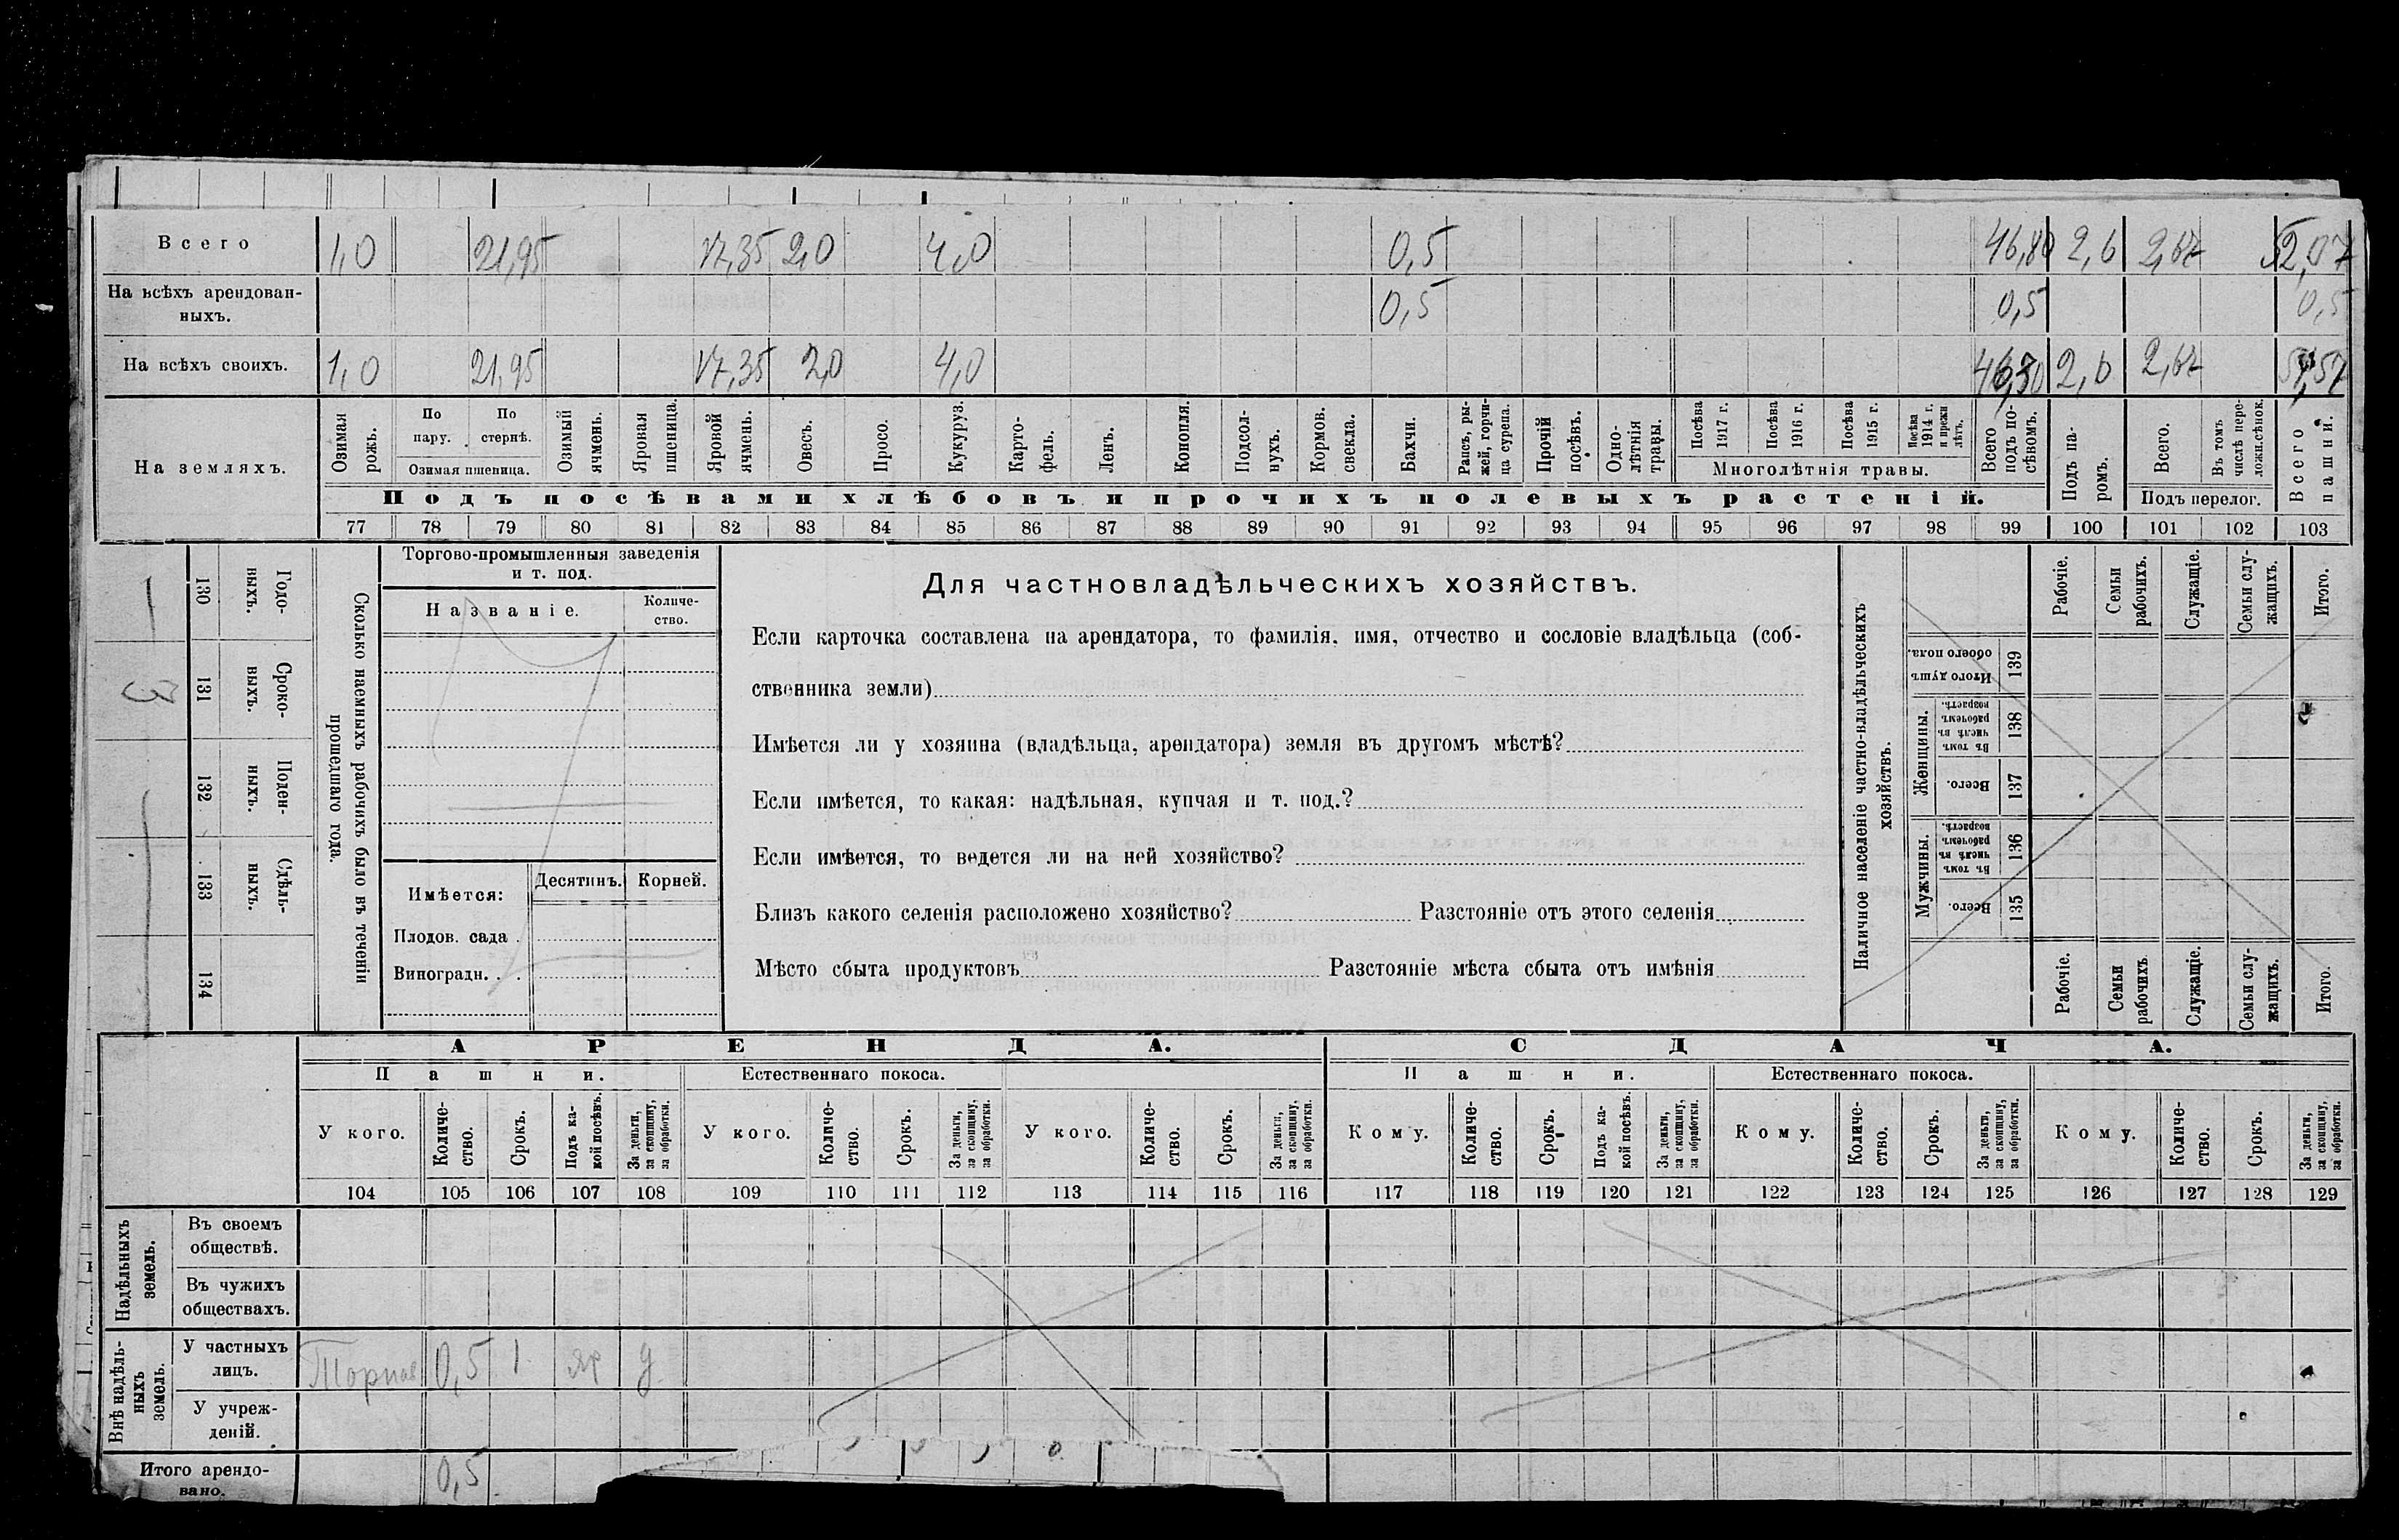 Всего 1,0 21,95 17,35 2,0 4,0 0,5 46,80 2,6 2,67 52,07
На всѣхъ арендован-
ныхъ. 0,5 0,5 0,5
На всѣхъ своихъ. 1,0 21,95 17,35 2,0 4,0 2,6 2,67
На земляхъ.
Озимая рожь.
По пару.
По стернѣ.
Озимая пшеница.
Озимый ячмень.
Яровая пшеница.
Яровой ячмень.
Овесъ.
Просо.
Кукуруз.
Карто-
фель.
Ленъ.
Конопля.
Подсол-
нухъ.
Кормов. свекла.
Бахчи.
Рапсъ, ры-
жей, горчи-
ца сурепа.
Прочій посѣвъ.
Одно-
лѣтнія травы.
Посѣва 1917 г.
Посѣва 1916 г.
Посѣва 1915 г.
Посѣва 1914 г. и прежн лѣтъ.
Многолѣтнія травы.
Всего подъ по-
сѣвомъ.
Подъ па-
ромъ.
Всего.
Въ томъ числѣ пере-
ложн.сѣнок.
Подъ перелог.
Всего пашни.
Подъ посѣвами хлѣбовъ и прочихъ полевыхъ растеній.
77 78 79 80 81 82 83 84 85 86 87 88 89 90 91 92 93 94 95 96 97 98 99 100 101 102 103
1
3
130 131 132 133 134
Годо-
выхъ.
Сроко-
ныхъ.
Поден-
ныхъ.
Сдѣль-
ныхъ.
Сколько наемныхъ рабочихъ было въ теченіи
прошедшаго года.
Торгово-промышленныя заведенія
и т. под.
Названіе.
Количе-
ство.
Имѣется:
Десятинъ. Корней.
Плодов. сада .
Виноградн. . .
Для частновладѣльческихъ хозяйствъ.
Если карточка составлена на арендатора, то фамилія, имя, отчество и сословіе владѣльца (соб-
ственника земли)
Имѣется ли у хозяина (владѣльца, арендатора) земля въ другомъ мѣстѣ?
Если имѣется, то какая: надѣльная, купчая и т. под.?
Если имѣется, то ведется ли на ней хозяйство?
Близъ какого селенія расположено хозяйство? Разстояніе отъ этого селенія
Мѣсто сбыта продуктовъ Разстояніе мѣста сбыта отъ имѣнія
Наличное населеніе частно-владѣльческихъ
хозяйствъ.
Рабочіе.
Семьи рабочихъ.
Служащіе.
Семьи слу-
жащихъ.
Итого.
Итого душъ обоего пола. 139
Женщины.
Въ томъ числѣ въ рабочемъ возрастѣ. 138
Всего. 137
Мужчины.
Въ томъ числѣ въ рабочемъ возрастѣ. 136
Всего. 135
Рабочіе.
Семьи рабочихъ.
Служащіе.
Семьи слу-
жащихъ.
Итого.
АРЕНДА. СДАЧА.
Пашни. Естественнаго покоса. Пашни. Естественнаго покоса.
У кого.
Количе-
ство.
Срокъ.
Подъ ка-
кой посѣвъ.
За деньги, за скопщину, за обработки.
У кого.
Количе-
ство.
Срокъ.
За деньги, за скопщину, за обработки.
У кого.
Количе-
ство.
Срокъ.
За деньги, за скопщину, за обработки.
Кому.
Количе-
ство.
Срокъ.
Подъ ка-
кой посѣвъ.
За деньги, за скопщину, за обработки.
Кому.
Количе-
ство.
Срокъ.
За деньги, за скопщину, за обработки.
Кому.
Количе-
ство.
Срокъ.
За деньги, за скопщину, за обработки.
104 105 106 107 108 109 110 111 112 113 114 115 116 117 118 119 120 121 122 123 124 125 126 127 128 129
Надѣльныхъ земель.
Въ своемъ
обществѣ.
Въ чужихъ
обществахъ.
Внѣ надѣль-
ныхъ земель.
У частныхъ
лицъ. 0,5 1 яр д
У учреж-
деній.
Итого арендо-
вано. 0,5